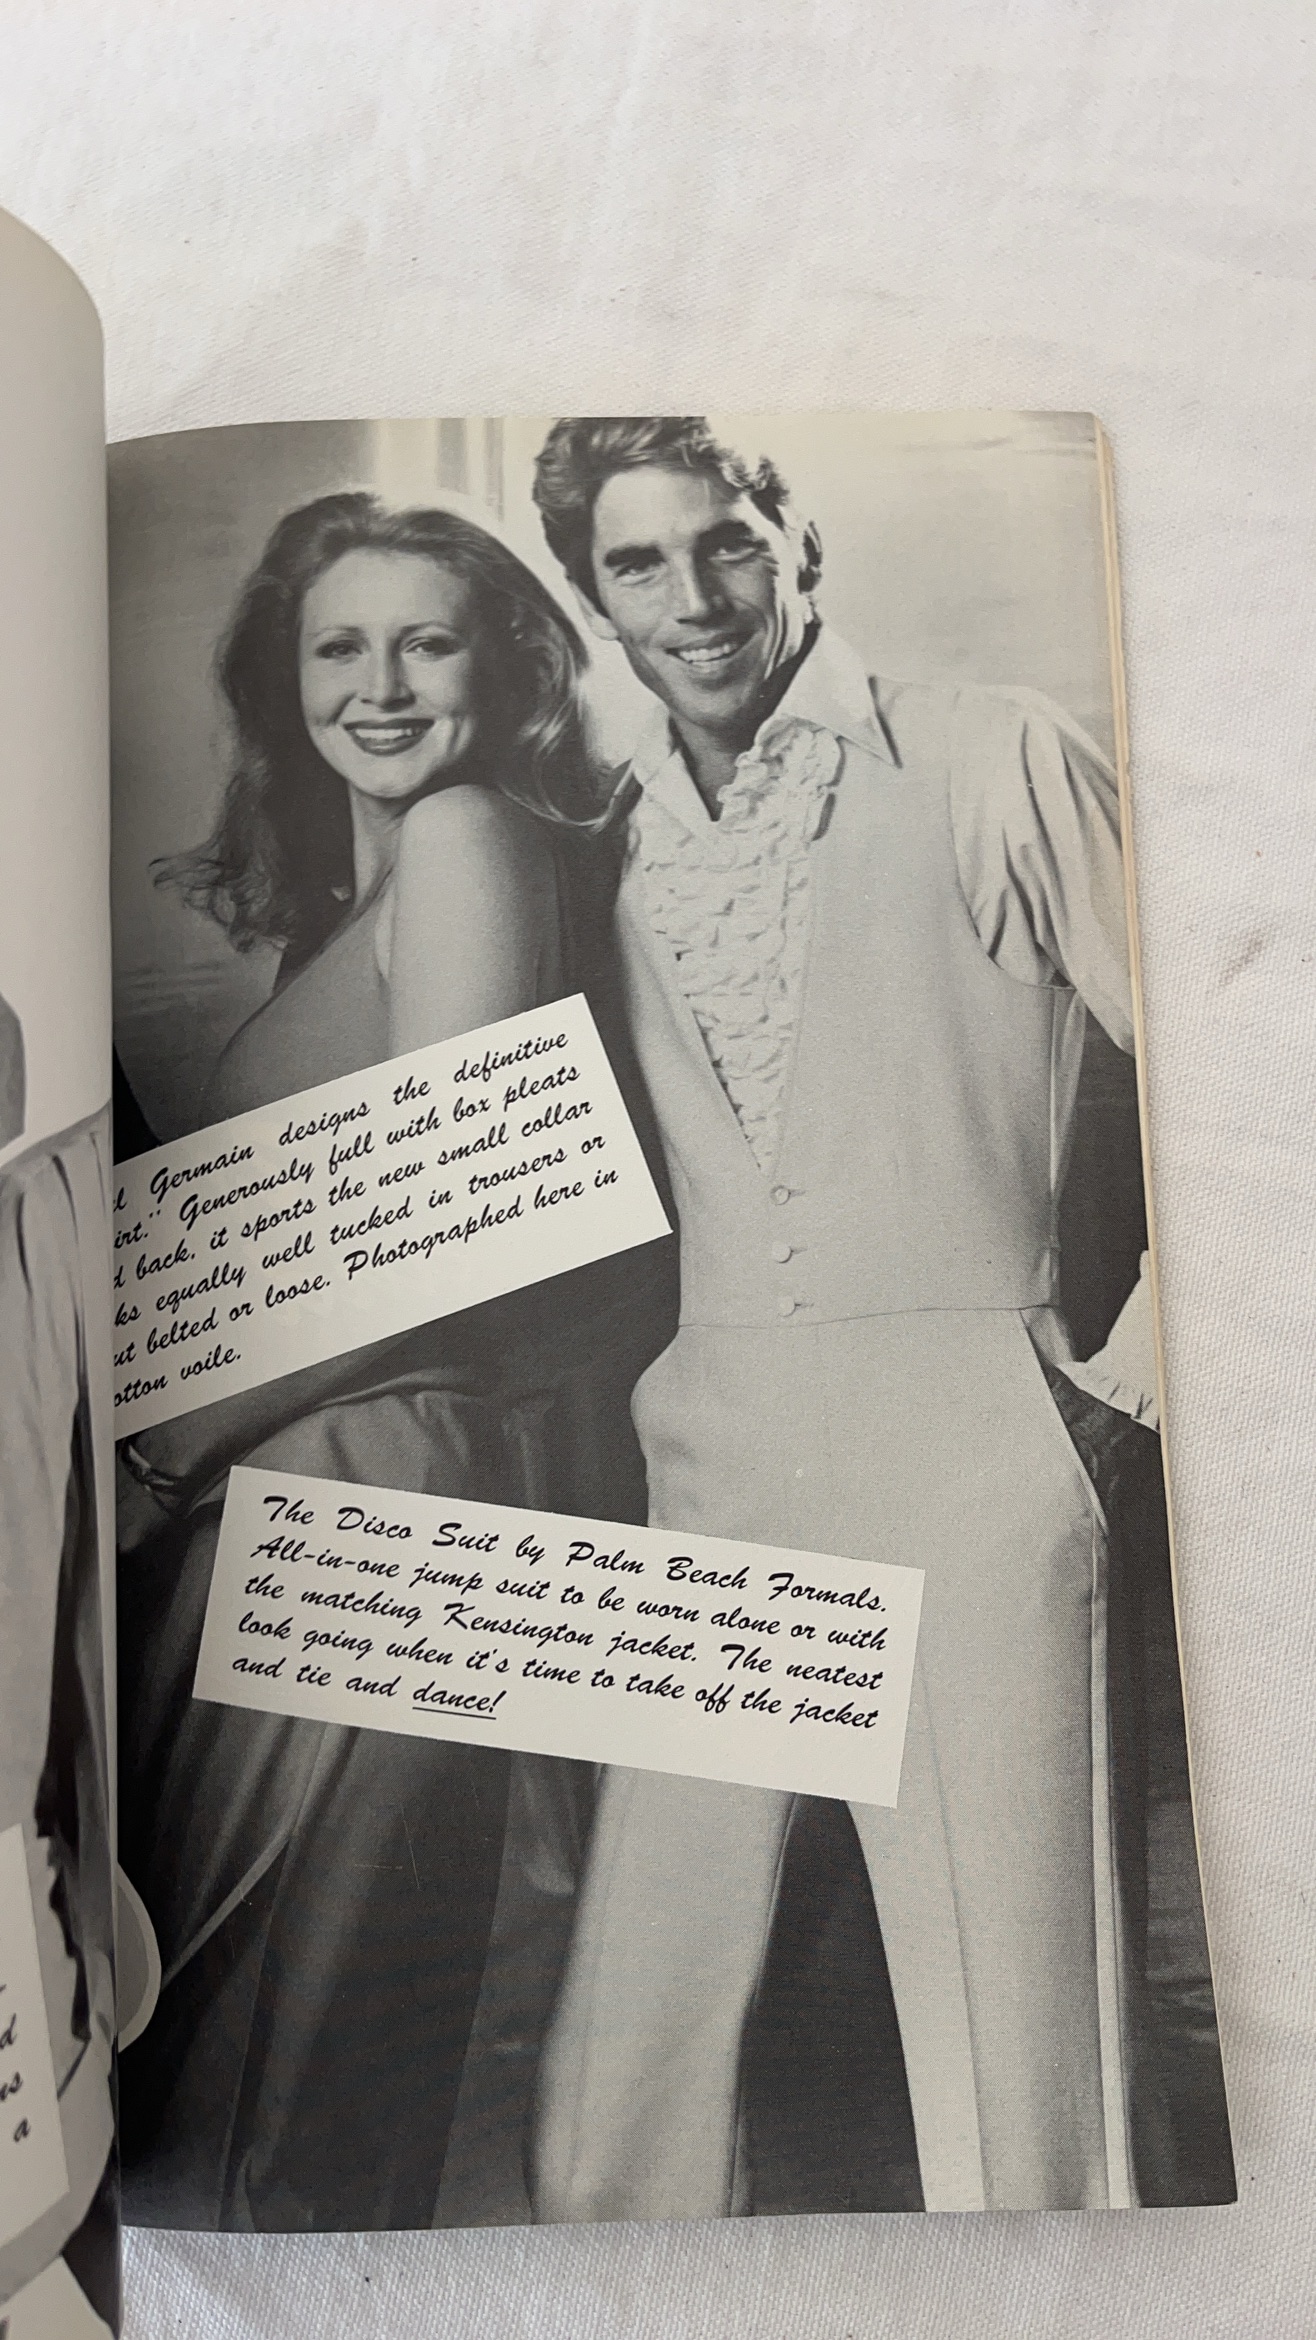 Germain designs the definitive
Generously full with box pleats
back, it sports the new small collar
equally well tucked in trousers or
belted or loose. Photographed here in
voile.
The Disco Suit by Palm Beach Formals.
All-in-one jump suit to be worn alone or with
the matching Kensington jacket. The neatest
look going when it's time to take off the jacket
and tie and dance!
a